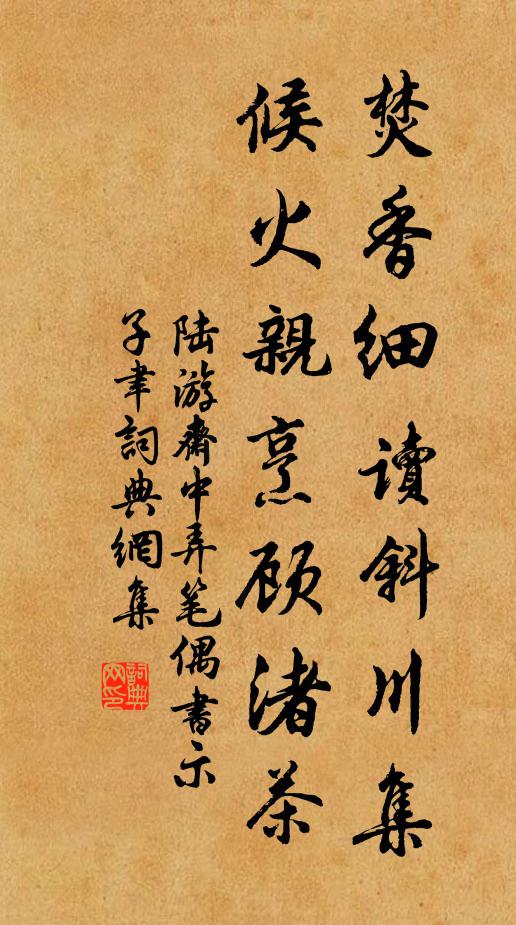 焚香细讀斜川集
候火親烹顾渚茶
陆游齋中弄笔偶書示
子聿詞典網集
詞典
网印